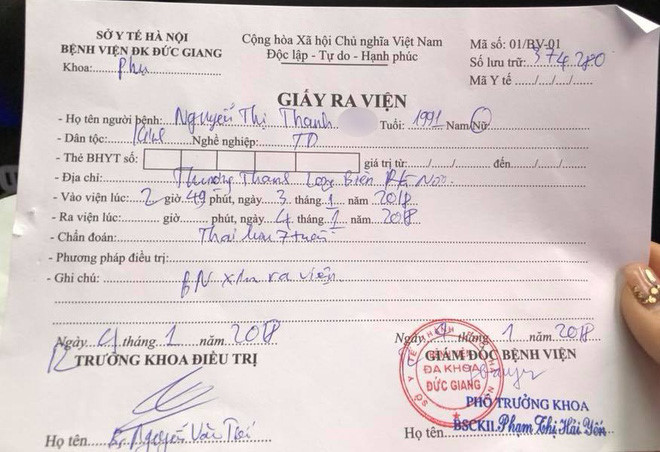 SỞ Y TẾ HÀ NỘI
BỆNH VIỆN ĐK ĐỨC GIANG
Khoa: Phụ
Cộng hòa Xã hội Chủ nghĩa Việt Nam
Độc lập - Tự do - Hạnh phúc
Mã số: 01/BV-01
Số lưu trữ: 374.280
Mã Y tế ...../...../...../.....
GIẤY RA VIỆN
- Họ tên người bệnh: Nguyễn Thị Thanh Tuổi: 1991 Nam/Nữ
- Dân tộc: Kinh Nghề nghiệp: TD
- Thẻ BHYT số: giá trị từ:...../...../..... đến...../...../.....
- Địa chỉ: Thượng Thanh Long Biên Hà Nội
- Vào viện lúc: 2 giờ 49 phút, ngày 3 tháng 1 năm 2018
- Ra viện lúc: giờ phút, ngày 4 tháng 1 năm 2018
- Chẩn đoán: Thai lưu 7 tuần
- Phương pháp điều trị:
- Ghi chú: BN xin ra viện
Ngày 4 tháng 1 năm 2018
TRƯỞNG KHOA ĐIỀU TRỊ
Họ tên Bs. Nguyễn Văn
Ngày 4 tháng 1 năm 2018
GIÁM ĐỐC BỆNH VIỆN
SỞ Y TẾ
ĐA KHOA
ĐỨC GIANG
PHÓ TRƯỞNG KHOA
Họ tên BSCKII. Phạm Thị Hải Yến